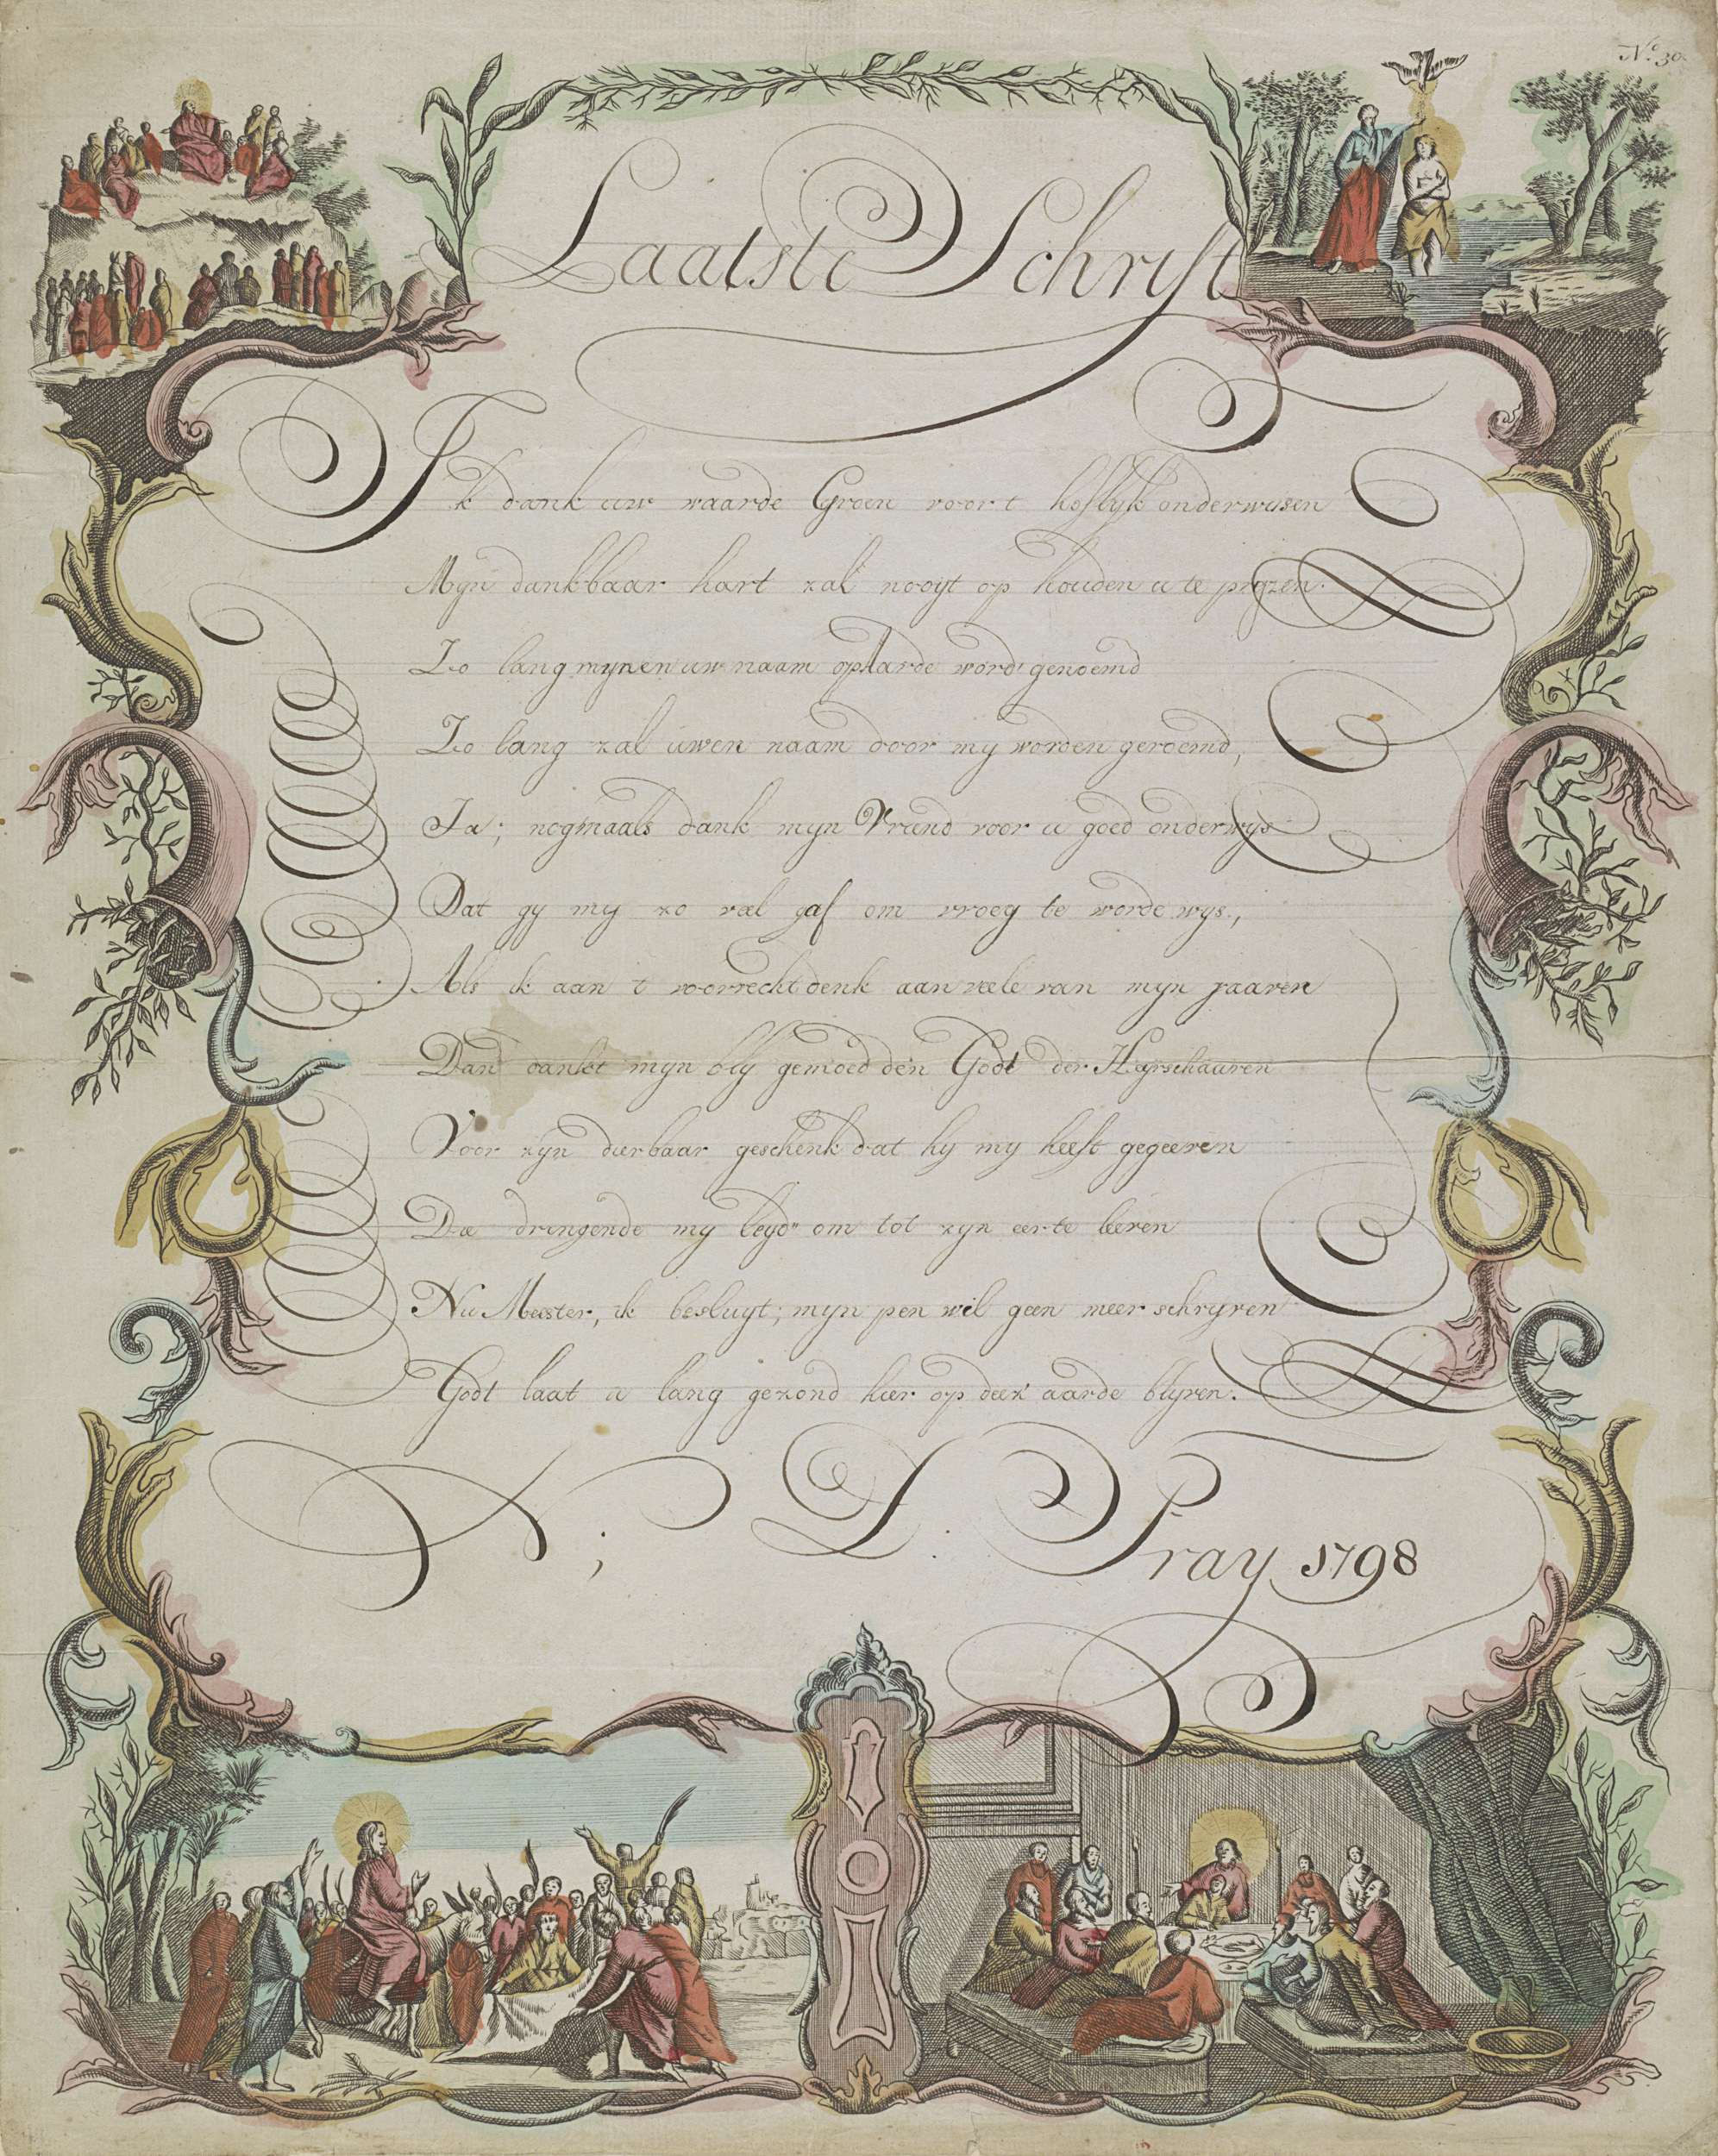 No. 30.
Laatste Schrift
Ik dank uw waarde Groen voor t hoflyk onderwysen
Myn dankbaar hart zal nooyt op houden u te pryzen.
Zo lang mynen uw naam op Aarde word genoemd
Zo lang zal uwen naam door my worden geroemd,
Ja; nogmaals dank myn Vrind voor u goed onderwys
Dat gy my zo veel gaf om vroeg te worde wys,
Als ik aan t voorrecht denk aan veele van myn jaaren
Dan dankt myn bly gemoed den Godt der Heyrschaaren
Voor zyn dierbaar geschenk dat hy my heeft gegeeven
Die dringende my leyd" om tot zyn eer te leeren
Nu Meester, ik besluyt; myn pen wil geen meer schryven
Godt laat u lang gezond hier op deez' aarde blyven.
D. Pray 1798